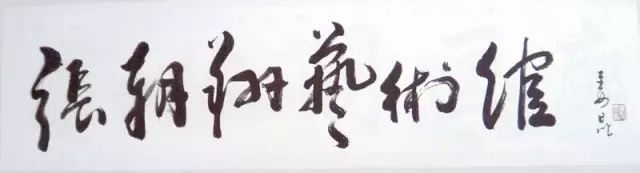 張朝翔藝術館